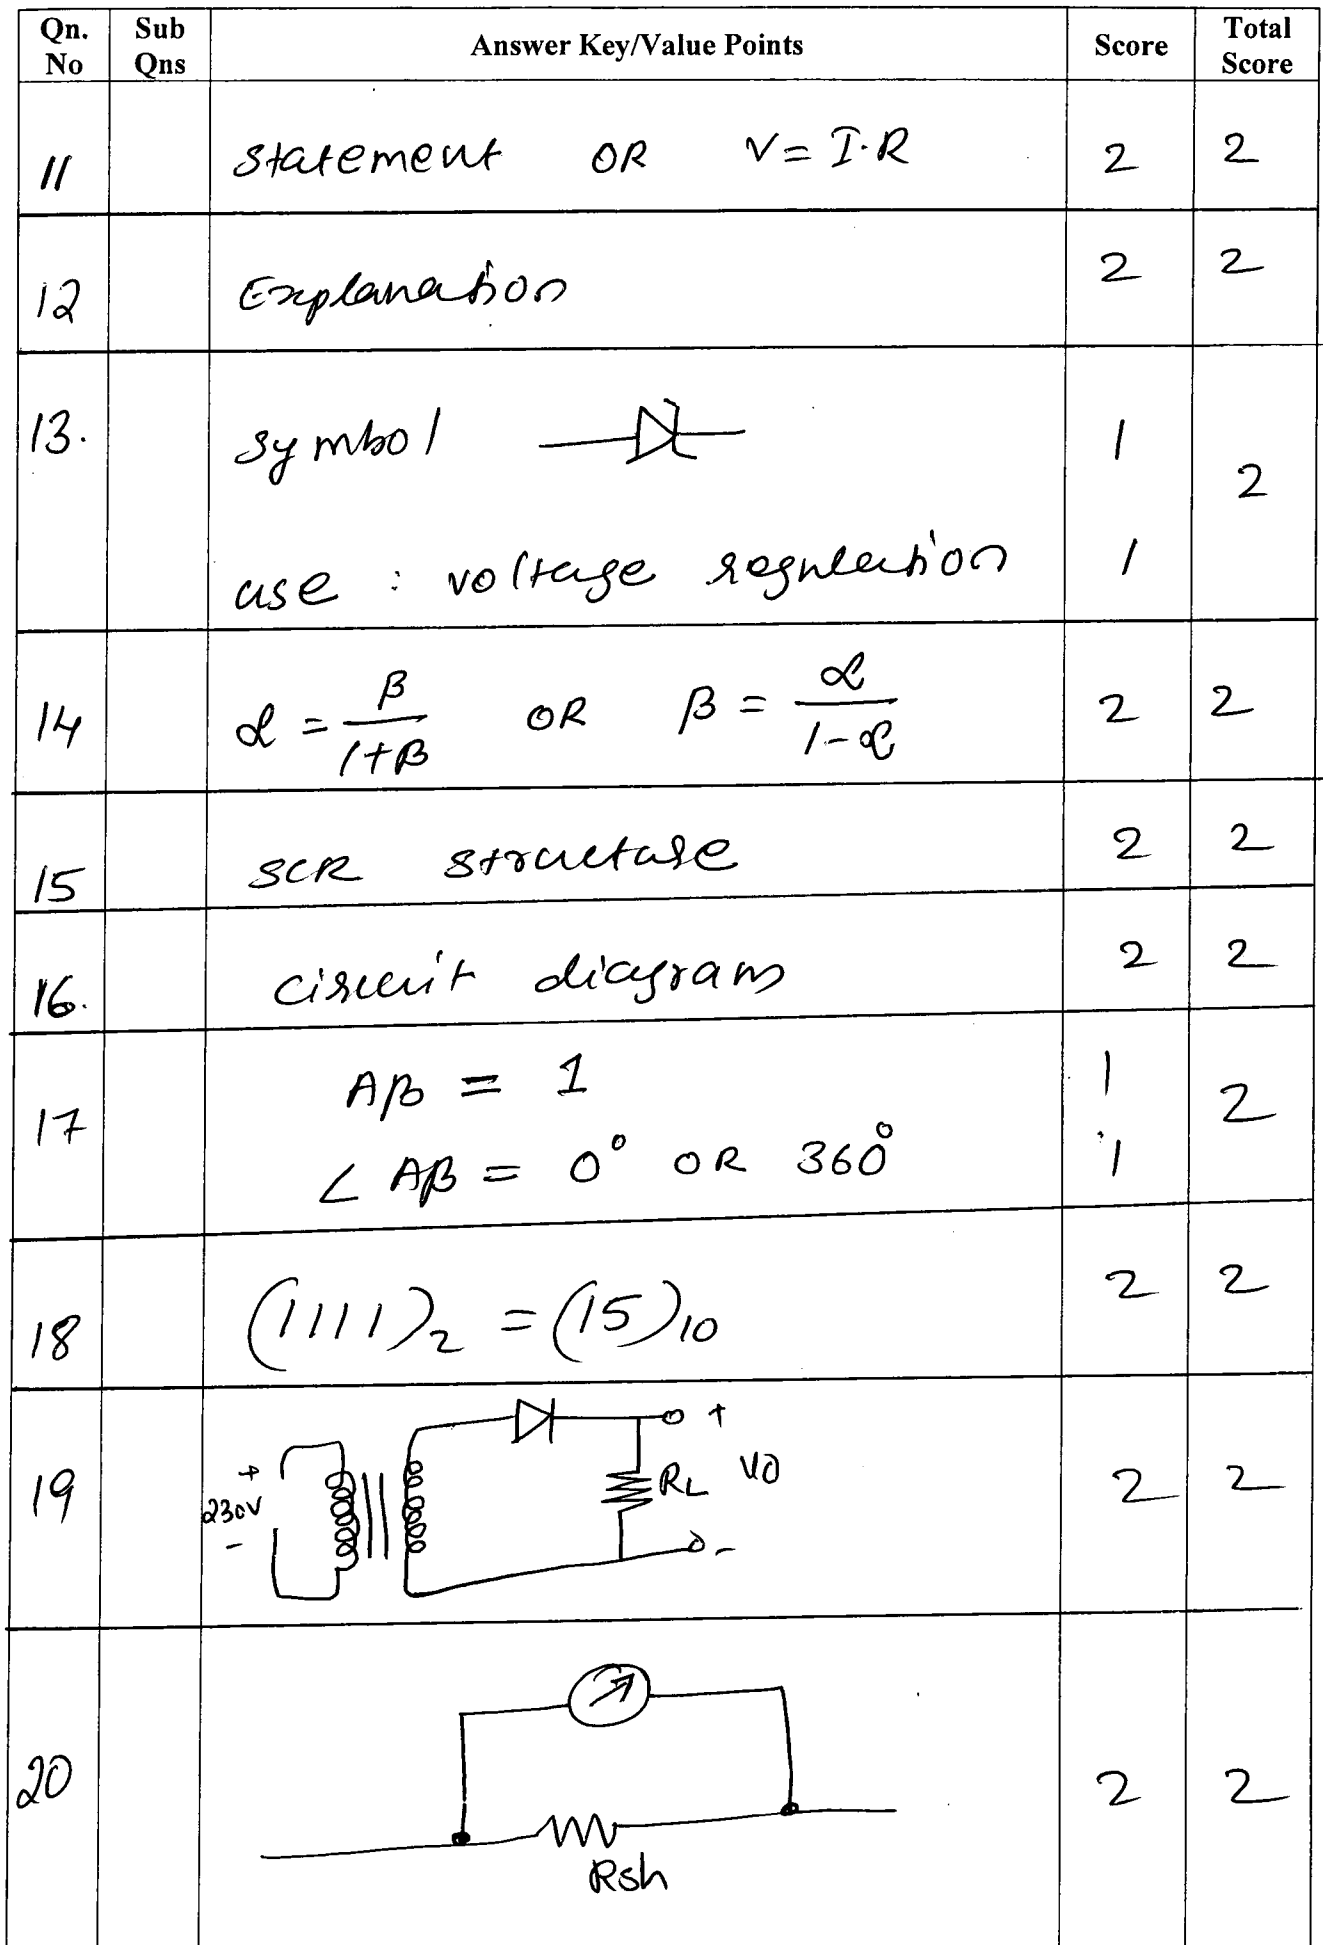 Qn. No Sub Qns Answer Key/Value Points Score Total Score
11 Statement OR V = I·R 2 2
12 Explanation 2 2
13. Symbol 1 2
use : voltage regulation 1
14 α = β/(1+β) OR β = α/(1-α) 2 2
15 SCR structure 2 2
16. circuit diagram 2 2
17 Aβ = 1 1 2
∠ Aβ = 0° OR 360° 1
18 (1111)₂ = (15)₁₀ 2 2
19 + 230V - RL + VO - 2 2
20 Rsh 2 2